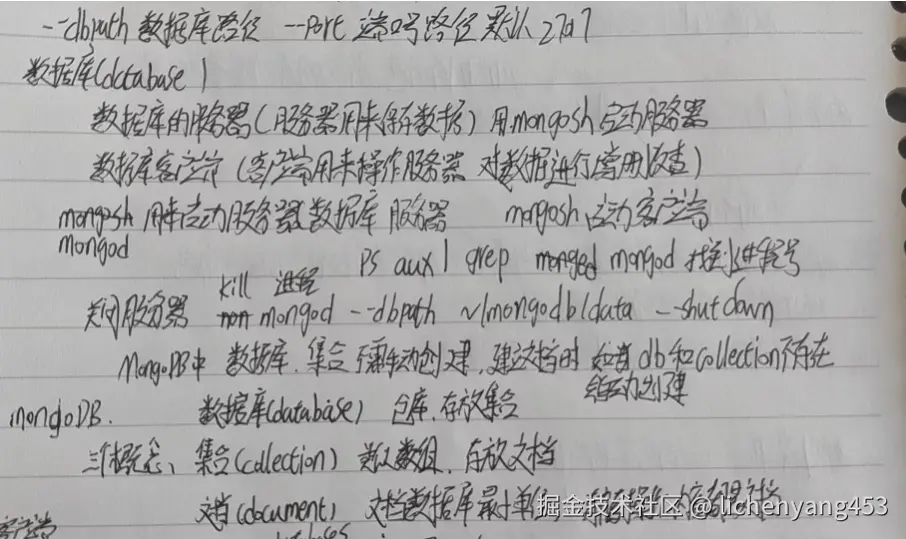 --dbpath 数据库路径 --port 端口号路径 默认 27017
数据库(database)
数据库的服务器(服务器用来保存数据) 用mongosh启动服务器
数据库客户端(客户端用来操作服务器 对数据进行增删改查)
mongosh 用来启动服务器 数据库 服务器 mongosh 启动客户端
mongod
ps aux | grep monged mongod 找到进程号
kill 进程
关闭服务器 mongod --dbpath ~/mongodb/data --shutdown
MongoDB中 数据库、集合 不需手动创建,建文档时 如 db和collection不存在
自动创建
mongoDB. 数据库(database) 仓库,存放集合
三个概念、集合(collection) 数组,存放文档
文档(document) 文档数据库最小单位
掘金技术社区 @ lichenyang453
客户端